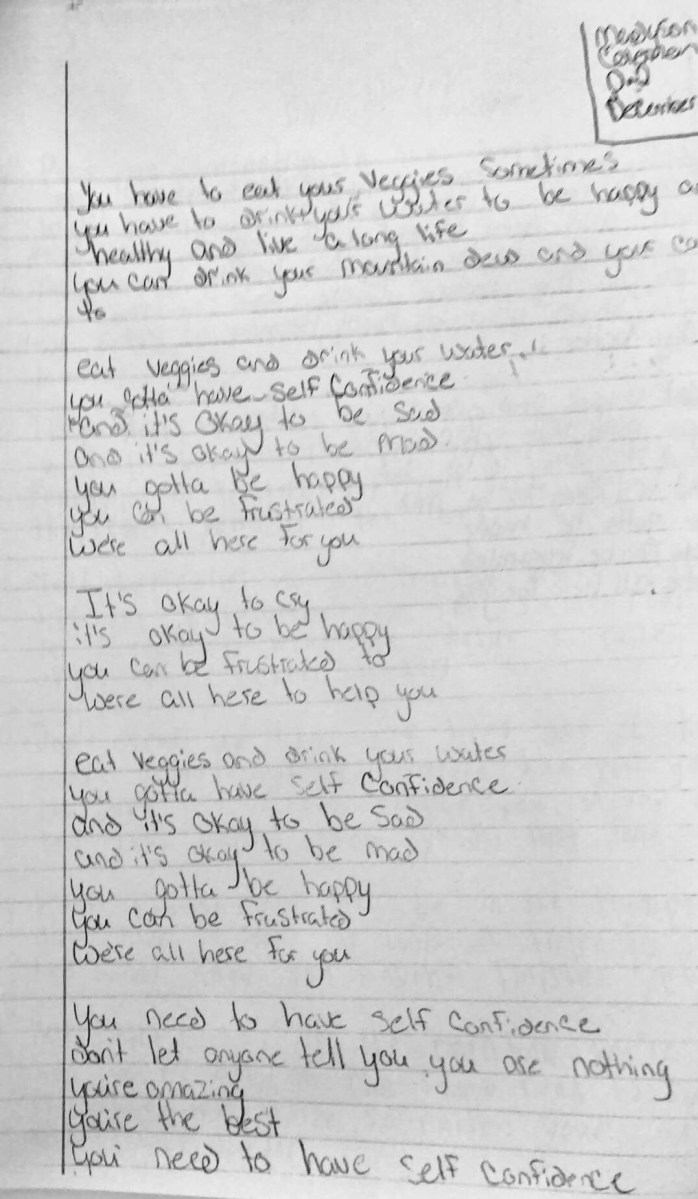 You have to eat your veggies sometimes
you have to drink your water to be happy
healthy and live a long life
you can drink your mountain dew and your
to
eat veggies and drink your water
you gotta have self confidence
and it's okay to be sad
and it's okay to be mad
you gotta be happy
you can be frustrated
We're all here for you
It's okay to cry
it's okay to be happy
you can be frustrated to
We're all here to help you
eat veggies and drink your water
you gotta have self confidence
and it's okay to be sad
and it's okay to be mad
you gotta be happy
you can be frustrated
We're all here for you
You need to have self confidence
don't let anyone tell you you are nothing
you're amazing
you're the best
you need to have self confidence